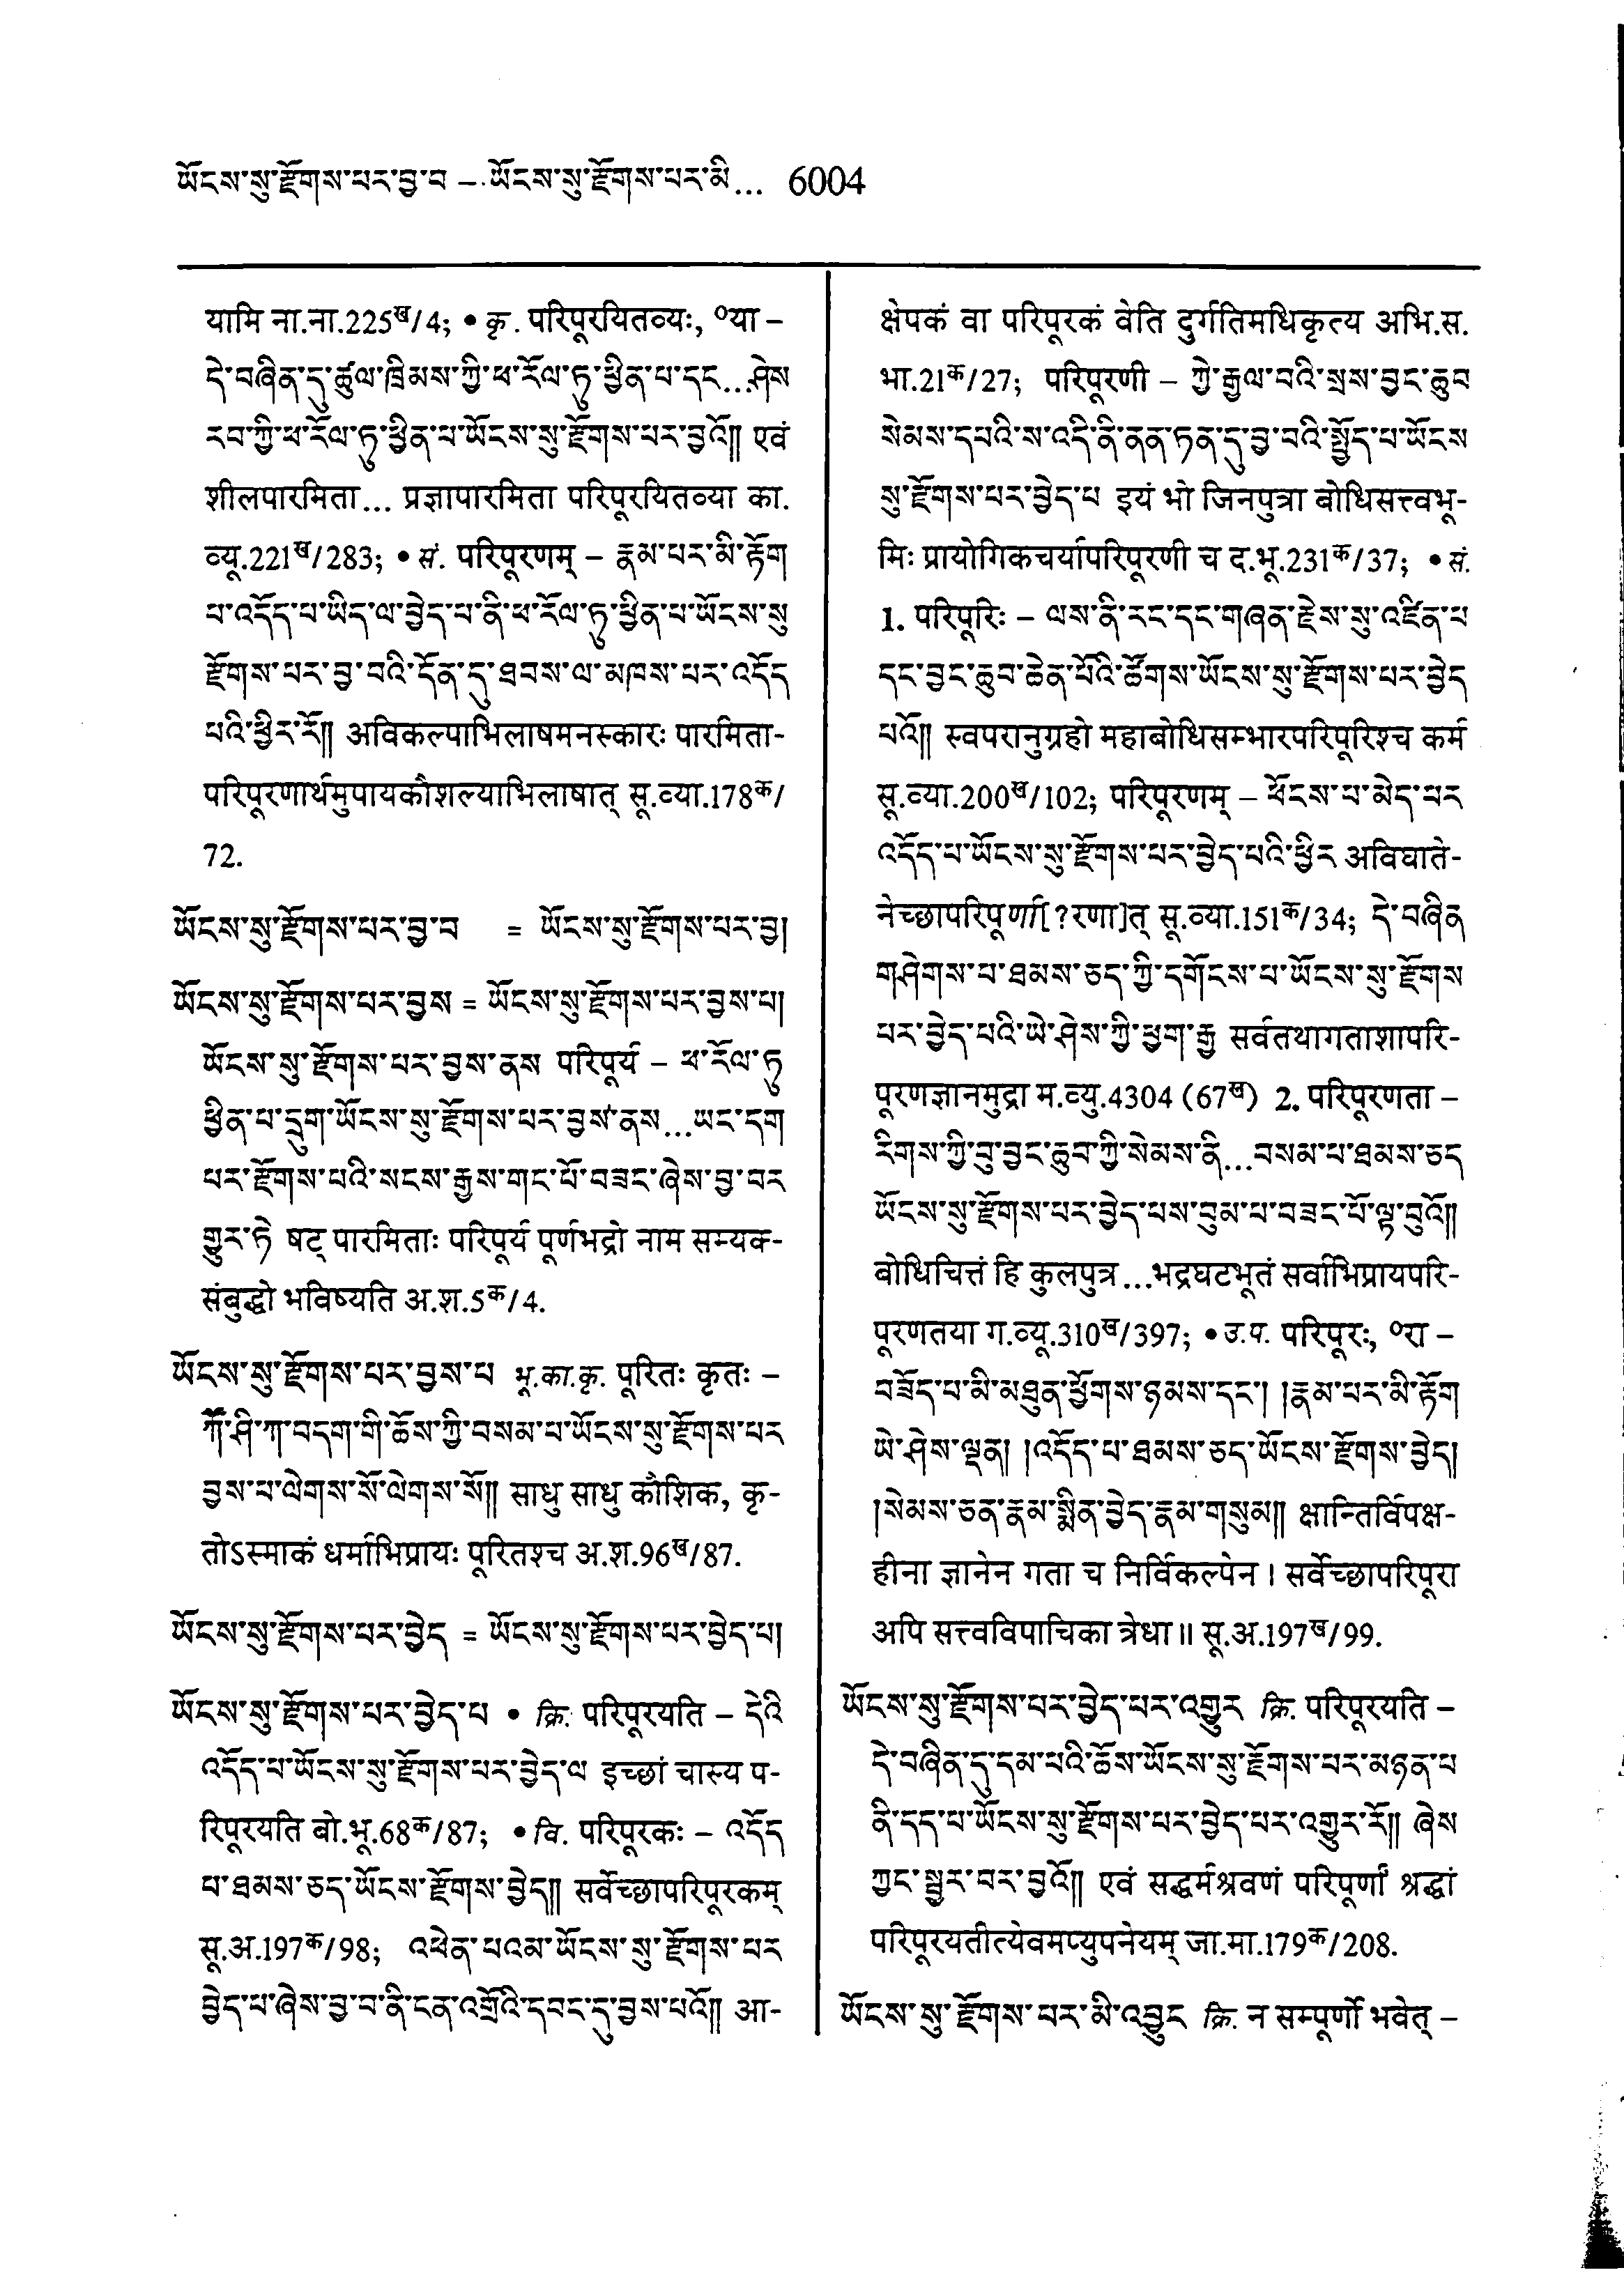 ཡོངས་སུ་རྫོགས་པར་བྱ་བ – ཡོངས་སུ་རྫོགས་པར་མི... 6004
यामि ना.ना.225ख/4; • कृ. परिपूरयितव्यः, ०या –
དེ་བཞིན་དུ་ཚུལ་ཁྲིམས་ཀྱི་ཕ་རོལ་ཏུ་ཕྱིན་པ་དང...ཤེས
རབ་ཀྱི་ཕ་རོལ་ཏུ་ཕྱིན་པ་ཡོངས་སུ་རྫོགས་པར་བྱའོ།། एवं
शीलपारमिता... प्रज्ञापारमिता परिपूरयितव्या का.
व्यू.221ख/283; • सं. परिपूरणम् – རྣམ་པར་མི་རྟོག
པ་འདོད་པ་ཡིད་ལ་བྱེད་པ་ནི་ཕ་རོལ་ཏུ་ཕྱིན་པ་ཡོངས་སུ
རྫོགས་པར་བྱ་བའི་དོན་དུ་ཐབས་ལ་མཁས་པར་འདོད
པའི་ཕྱིར་རོ།། अविकल्पाभिलाषमनस्कारः पारमिता-
परिपूरणार्थमुपायकौशल्याभिलाषात् सू.व्या.178क/
72.
ཡོངས་སུ་རྫོགས་པར་བྱ་བ = ཡོངས་སུ་རྫོགས་པར་བྱ།
ཡོངས་སུ་རྫོགས་པར་བྱས = ཡོངས་སུ་རྫོགས་པར་བྱས་པ།
ཡོངས་སུ་རྫོགས་པར་བྱས་ནས परिपूर्य – ཕ་རོལ་ཏུ
ཕྱིན་པ་དྲུག་ཡོངས་སུ་རྫོགས་པར་བྱས་ནས...ཡང་དག
པར་རྫོགས་པའི་སངས་རྒྱས་གང་པོ་བཟང་ཞེས་བྱ་བར
གྱུར་ཏེ षट् पारमिताः परिपूर्य पूर्णभद्रो नाम सम्यक-
संबुद्धो भविष्यति अ.श.5क/4.
ཡོངས་སུ་རྫོགས་པར་བྱས་པ भू.का.कृ. पूरितः कृतः –
ཀཽ་ཤི་ཀ་བདག་གི་ཆོས་ཀྱི་བསམ་པ་ཡོངས་སུ་རྫོགས་པར
བྱས་པ་ལེགས་སོ་ལེགས་སོ།། साधु साधु कौशिक, कृ-
तोऽस्माकं धर्माभिप्रायः पूरितश्च अ.श.96ख/87.
ཡོངས་སུ་རྫོགས་པར་བྱེད = ཡོངས་སུ་རྫོགས་པར་བྱེད་པ།
ཡོངས་སུ་རྫོགས་པར་བྱེད་པ • क्रि. परिपूरयति – དེའི
འདོད་པ་ཡོངས་སུ་རྫོགས་པར་བྱེད་ལ इच्छां चास्य प-
रिपूरयति बो.भू.68क/87; • वि. परिपूरकः – འདོད
པ་ཐམས་ཅད་ཡོངས་རྫོགས་བྱེད།། सर्वेच्छापरिपूरकम्
सू.अ.197क/98; འཕེན་པའམ་ཡོངས་སུ་རྫོགས་པར
བྱེད་པ་ཞེས་བྱ་བ་ནི་ངན་འགྲོའི་དབང་དུ་བྱས་པའོ།། आ-
क्षेपकं वा परिपूरकं वेति दुर्गतिमधिकृत्य अभि.स.
भा.21क/27; परिपूरणी – ཀྱེ་རྒྱལ་བའི་སྲས་བྱང་ཆུབ
སེམས་དཔའི་ས་འདི་ནི་ནན་ཏན་དུ་བྱ་བའི་སྤྱོད་པ་ཡོངས
སུ་རྫོགས་པར་བྱེད་པ इयं भो जिनपुत्रा बोधिसत्त्वभू-
मिः प्रायोगिकचर्यापरिपूरणी च द.भू.231क/37; • सं.
1. परिपूरिः – ལས་ནི་རང་དང་གཞན་རྗེས་སུ་འཛིན་པ
དང་བྱང་ཆུབ་ཆེན་པོའི་ཚོགས་ཡོངས་སུ་རྫོགས་པར་བྱེད
པའོ།། स्वपरानुग्रहो महाबोधिसम्भारपरिपूरिश्च कर्म
सू.व्या.200ख/102; परिपूरणम् – ཕོངས་པ་མེད་པར
འདོད་པ་ཡོངས་སུ་རྫོགས་པར་བྱེད་པའི་ཕྱིར अविघाते-
नेच्छापरिपूर्णा[?रणा]त् सू.व्या.151क/34; དེ་བཞིན
གཤེགས་པ་ཐམས་ཅད་ཀྱི་དགོངས་པ་ཡོངས་སུ་རྫོགས
པར་བྱེད་པའི་ཡེ་ཤེས་ཀྱི་ཕྱག་རྒྱ सर्वतथागताशापरि-
पूरणज्ञानमुद्रा म.व्यु.4304 (67ख) 2. परिपूरणता –
རིགས་ཀྱི་བུ་བྱང་ཆུབ་ཀྱི་སེམས་ནི...བསམ་པ་ཐམས་ཅད
ཡོངས་སུ་རྫོགས་པར་བྱེད་པས་བུམ་པ་བཟང་པོ་ལྟ་བུའོ།།
बोधिचित्तं हि कुलपुत्र...भद्रघटभूतं सर्वाभिप्रायपरि-
पूरणतया ग.व्यू.310ख/397; • उ.प. परिपूरः, ०रा –
བཟོད་པ་མི་མཐུན་ཕྱོགས་ཉམས་དང་། །རྣམ་པར་མི་རྟོག
ཡེ་ཤེས་ལྡན། །འདོད་པ་ཐམས་ཅད་ཡོངས་རྫོགས་བྱེད།
།སེམས་ཅན་རྣམ་སྨིན་བྱེད་རྣམ་གསུམ།། क्षान्तिर्विपक्ष-
हीना ज्ञानेन गता च निर्विकल्पेन । सर्वेच्छापरिपूरा
अपि सत्त्वविपाचिका त्रेधा ॥ सू.अ.197ख/99.
ཡོངས་སུ་རྫོགས་པར་བྱེད་པར་འགྱུར क्रि. परिपूरयति –
དེ་བཞིན་དུ་དམ་པའི་ཆོས་ཡོངས་སུ་རྫོགས་པར་མཉན་པ
ནི་དད་པ་ཡོངས་སུ་རྫོགས་པར་བྱེད་པར་འགྱུར་རོ།། ཞེས
ཀྱང་སྦྱར་བར་བྱའོ།། एवं सद्धर्मश्रवणं परिपूर्णां श्रद्धां
परिपूरयतीत्येवमप्युपनेयम् जा.मा.179क/208.
ཡོངས་སུ་རྫོགས་པར་མི་འབྱུང क्रि. न सम्पूर्णो भवेत् –